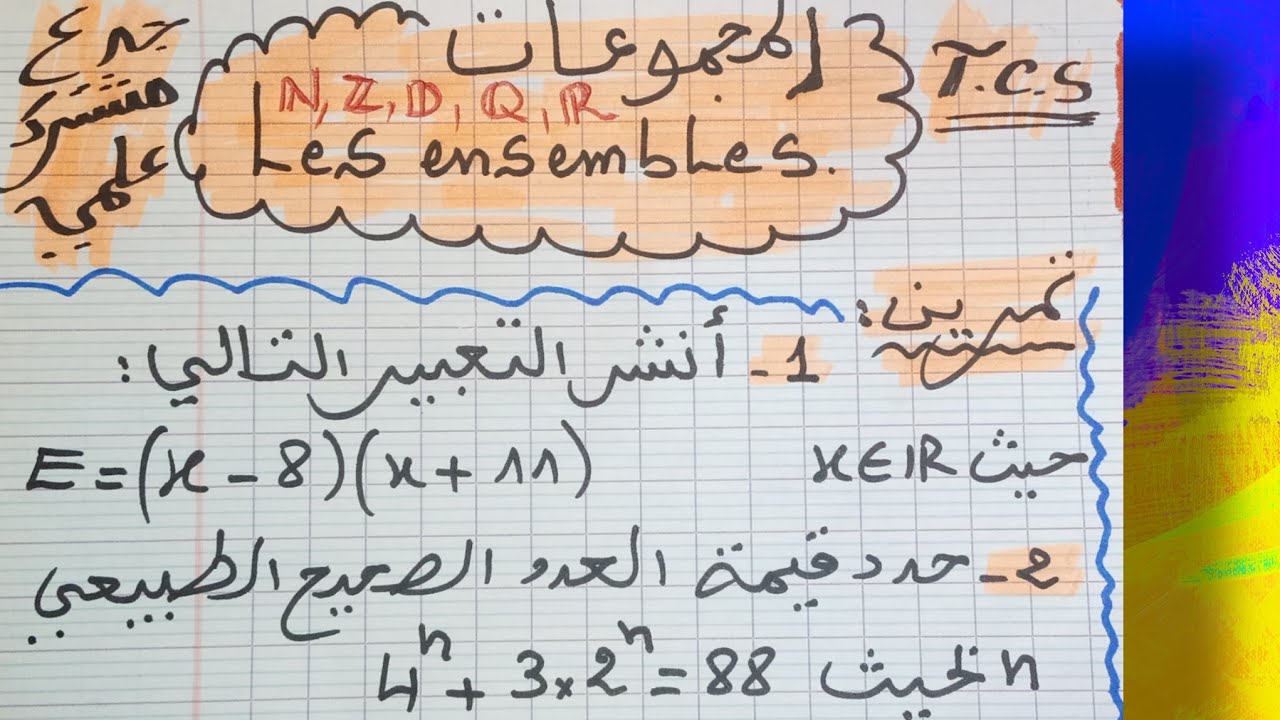 جدع مشترك علمي
المجموعات
T.C.S
N, Z, D, Q, R
Les ensembles.
تمرين:
1- أنشر التعبير التالي:
E = (x - 8)(x + 11) حيث x∈IR
2- حدد قيمة العدد الصحيح الطبيعي
n بحيث 4ⁿ + 3×2ⁿ = 88